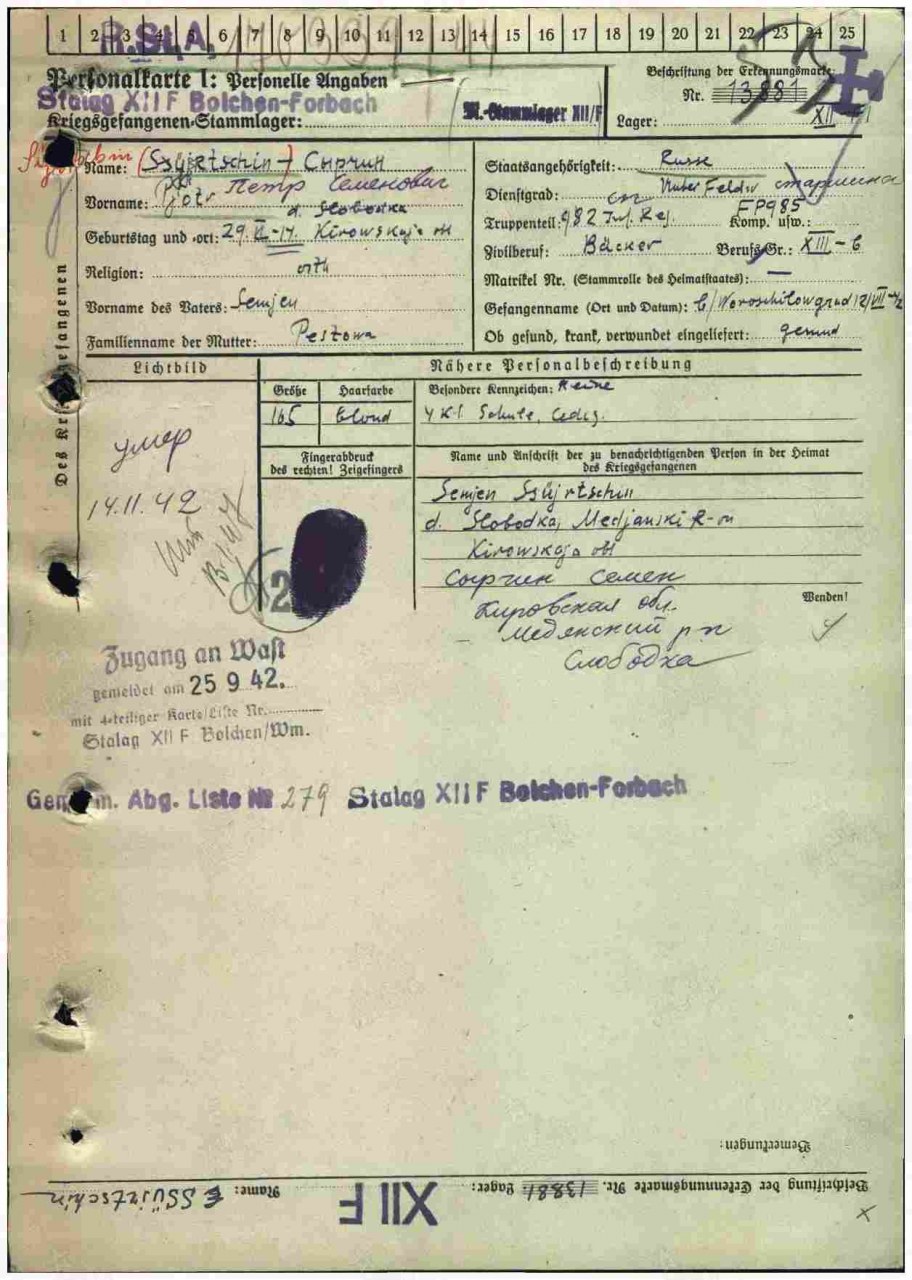 1 2 3 4 5 6 7 8 9 10 11 12 13 14 15 16 17 18 19 20 21 22 23 24 25
R.St.A.
Personalkarte I: Personelle Angaben
Stalag XII F Bolchen-Forbach
Kriegsgefangenen-Stammlager: M.-Stammlager XII/F
Beschriftung der Erkennungsmarke
Nr. 13881
Lager: XII F
Des Kriegsgefangenen
Name: (Ssyjrtschin) Сырчин
Vorname: Pjotr Петр Семенович
d. Slobodka
Geburtstag und -ort: 29.VI-14. Kirowskaja obl
Religion: orth
Vorname des Vaters: Semjen
Familienname der Mutter: Pestowa
Staatsangehörigkeit: Russe
Dienstgrad: Unter Feldw старшина
Truppenteil: 982 Inf. Reg. Komp. usw.: FP985
Zivilberuf: Bäcker Berufs-Gr.: XIII-6
Matrikel Nr. (Stammrolle des Heimatstaates): —
Gefangennahme (Ort und Datum): b/Woroschilowgrad 12/VII-42
Ob gesund, krank, verwundet eingeliefert: gesund
Lichtbild
умер
14.11.42
Nähere Personalbeschreibung
Größe Haarfarbe Besondere Kennzeichen: Keine
165 blond 4 Kl. Schule, ledig.
Fingerabdruck
des rechten! Zeigefingers
2
Name und Anschrift der zu benachrichtigenden Person in der Heimat
des Kriegsgefangenen
Semjen Ssyjrtschin
d. Slobodka, Medjanski R-on
Kirowskaja obl
Сырчин Семен
Кировская обл.
Медянский р-н
Слободка
Wenden!
Zugang an Wast
gemeldet am 25 9 42.
mit 4-teiliger Karte/Liste Nr.
Stalag XII F Bolchen/Wm.
Gem. m. Abg. Liste № 279 Stalag XII F Bolchen-Forbach
Bemerkungen:
Beschriftung der Erkennungsmarke Nr. 13881 Lager: XII F Name: Ssüjrtschin